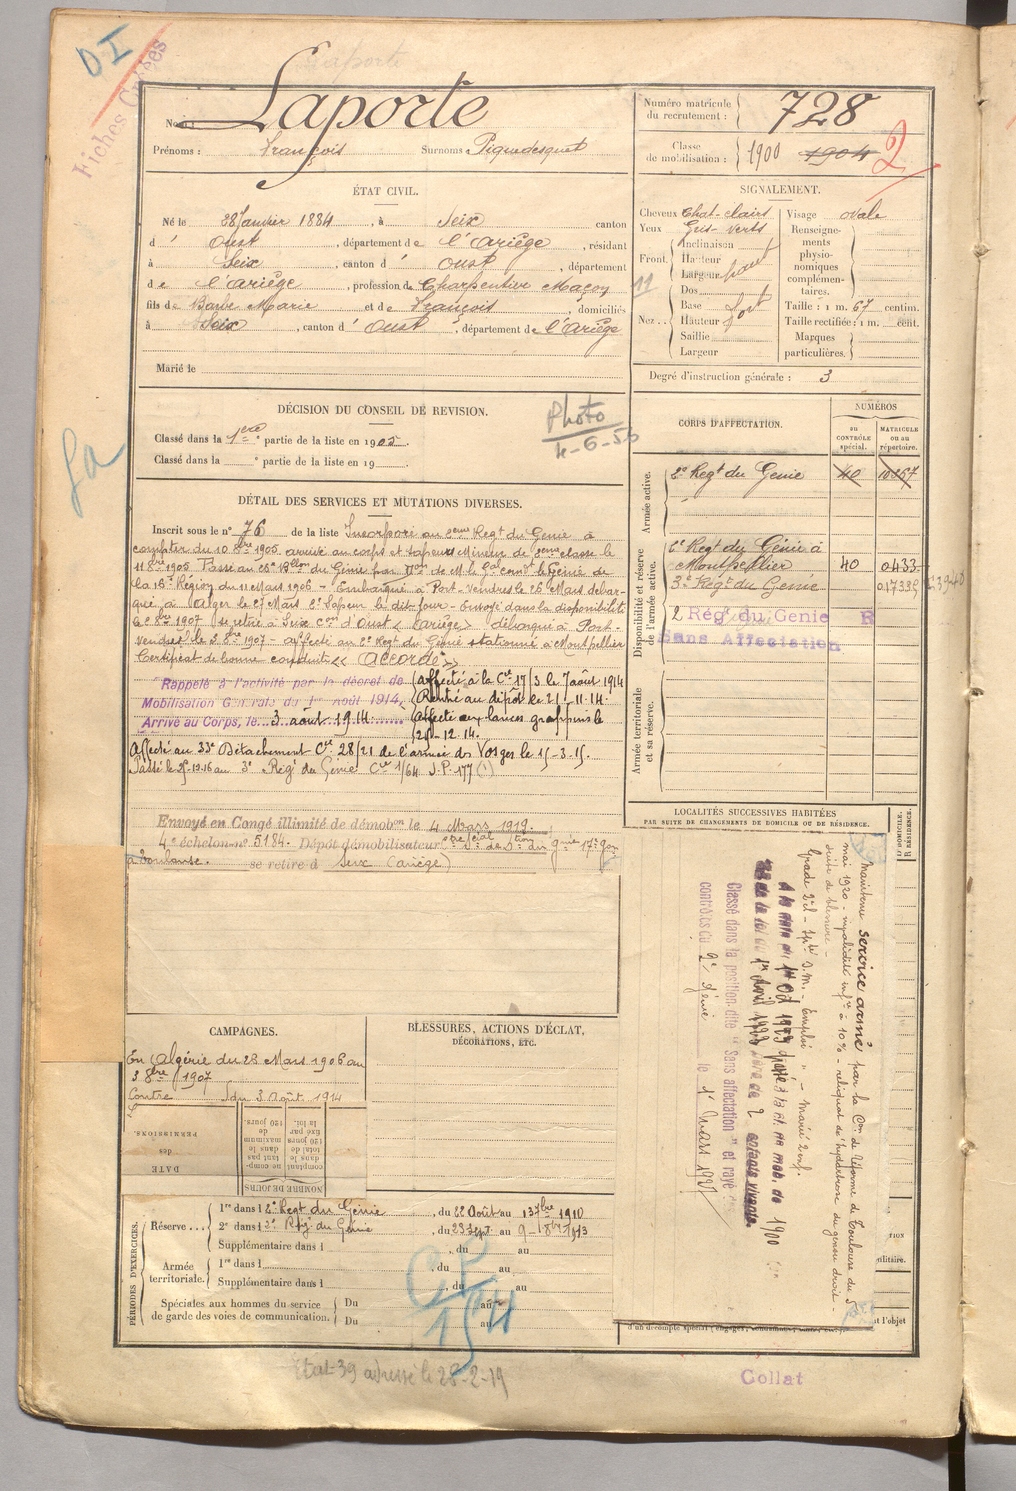 D I
Fiches Croisées
Nom : Laporte
Numéro matricule du recrutement : 728
Prénoms : François Surnoms Piquedesquet
Classe de mobilisation : 1900 1904 2
ÉTAT CIVIL.
Né le 28 Janvier 1884, à Seix canton
d' Oust, département de l'Ariège, résidant
à Seix, canton d' Oust, département
de l'Ariège, profession de Charpentier Maçon
fils de Barbe Marie et de François, domiciliés
à Seix, canton d' Oust, département de l'Ariège
Marié le
SIGNALEMENT.
Cheveux Chat-clairs
Yeux Gris-verts
Front. Inclinaison
Hauteur
Largeur haut
Nez.. Dos
Base fort
Hauteur
Saillie
Largeur
Visage ovale
Renseignements physionomiques complémentaires.
Taille : 1 m. 67 centim.
Taille rectifiée : 1 m. cent.
Marques particulières.
11
Degré d'instruction générale : 3
DÉCISION DU CONSEIL DE REVISION.
Classé dans la 1ère partie de la liste en 1905.
Classé dans la ° partie de la liste en 19
Photo
La
CORPS D'AFFECTATION.
NUMÉROS
au CONTRÔLE spécial.
MATRICULE ou au répertoire.
Armée active.
2e Regt du Genie 40
Disponibilité et réserve de l'armée active.
Regt du Génie à
Montpellier 40 0433
3e Regt du Genie
2 Régt du Genie R
Sans Affectation
Armée territoriale et sa réserve.
DÉTAIL DES SERVICES ET MUTATIONS DIVERSES.
Inscrit sous le n° 76 de la liste Incorporé au 2eme Regt du Genie à
compter du 10 8bre 1905 arrivé au corps et sapeur Mineur de 2eme classe le
11 8bre 1905 Passé au 26e Bon du Génie par Don de M. le Gal comt le Génie de
la 16e Région du 11 Mars 1906 - Embarqué à Port-Vendres le 26 Mars débar-
qué à Alger le 27 Mars 2e Sapeur le dit jour - Envoyé dans la disponibilité
le 8bre 1907 se retire à Seix Con d'Oust (Ariège) débarqué à Port-
Vendres le 3 8bre 1907 - affecté au 2e Regt du Génie stationné à Montpellier
Certificat de bonne conduite « Accordé »
Rappelé à l'activité par le décret de
Mobilisation Générale du 1er Août 1914,
Arrivé au Corps, le 3 aout 1914
affecté à la Cie 17/3 le 7 août 1914
Rentré au dépôt le 21-11-14.
Affecté aux lances grappins le
12-14.
Affecté au 33e Détachement Cie 28/21 de l'armée des Vosges le 15-3-15.
Passé le 25-12-16 au 3e Régt du Génie Cie 1/64
Envoyé en Congé illimité de démobon le 4 Mars 1919.
4e échelon n° 5184. Dépôt démobilisateur
à Toulouse. se retire à Seix (Ariège)
LOCALITÉS SUCCESSIVES HABITÉES
PAR SUITE DE CHANGEMENTS DE DOMICILE OU DE RÉSIDENCE.
D DOMICILE.
R RÉSIDENCE.
Maintenu service armé par la Con de Réforme de Toulouse du 5
mai 1920 - invalidité infre à 10% - reliquat de hydarthrose du genou droit -
suite de blessure -
Grade 2e cl - Emploi " - marié 2 enf.
A la date du 1er Oct 1929 passé à la cl. de mob. de 1900
de la loi du 1er Avril 1923 père de 2 enfants vivants.
Classé dans la position dite "Sans affectation" et rayé des
contrôles du 2e Génie le 1er Mars 1927
CAMPAGNES.
En Algérie du 28 Mars 1906 au
3 8bre 1907
Contre du 3 Août 1914
BLESSURES, ACTIONS D'ÉCLAT,
DÉCORATIONS, ETC.
DATE des PERMISSIONS.
NOMBRE DE JOURS
comptant dans le total de 120 jours fixé par la loi.
ne comptant pas dans le maximum de 120 jours
PÉRIODES D'EXERCICES.
Réserve ... 1re dans l 2e Regt du Génie, du 22 Août au 13 7bre 1910
2e dans l 2e Regt du Génie, du 23 Sept au 9 8bre 1913
Supplémentaire dans l, du au
Armée territoriale. 1re dans l, du au
Supplémentaire dans l, du au
Spéciales aux hommes du service de garde des voies de communication. Du au
Du au
État-39 adressé le 28-2-19
Collat